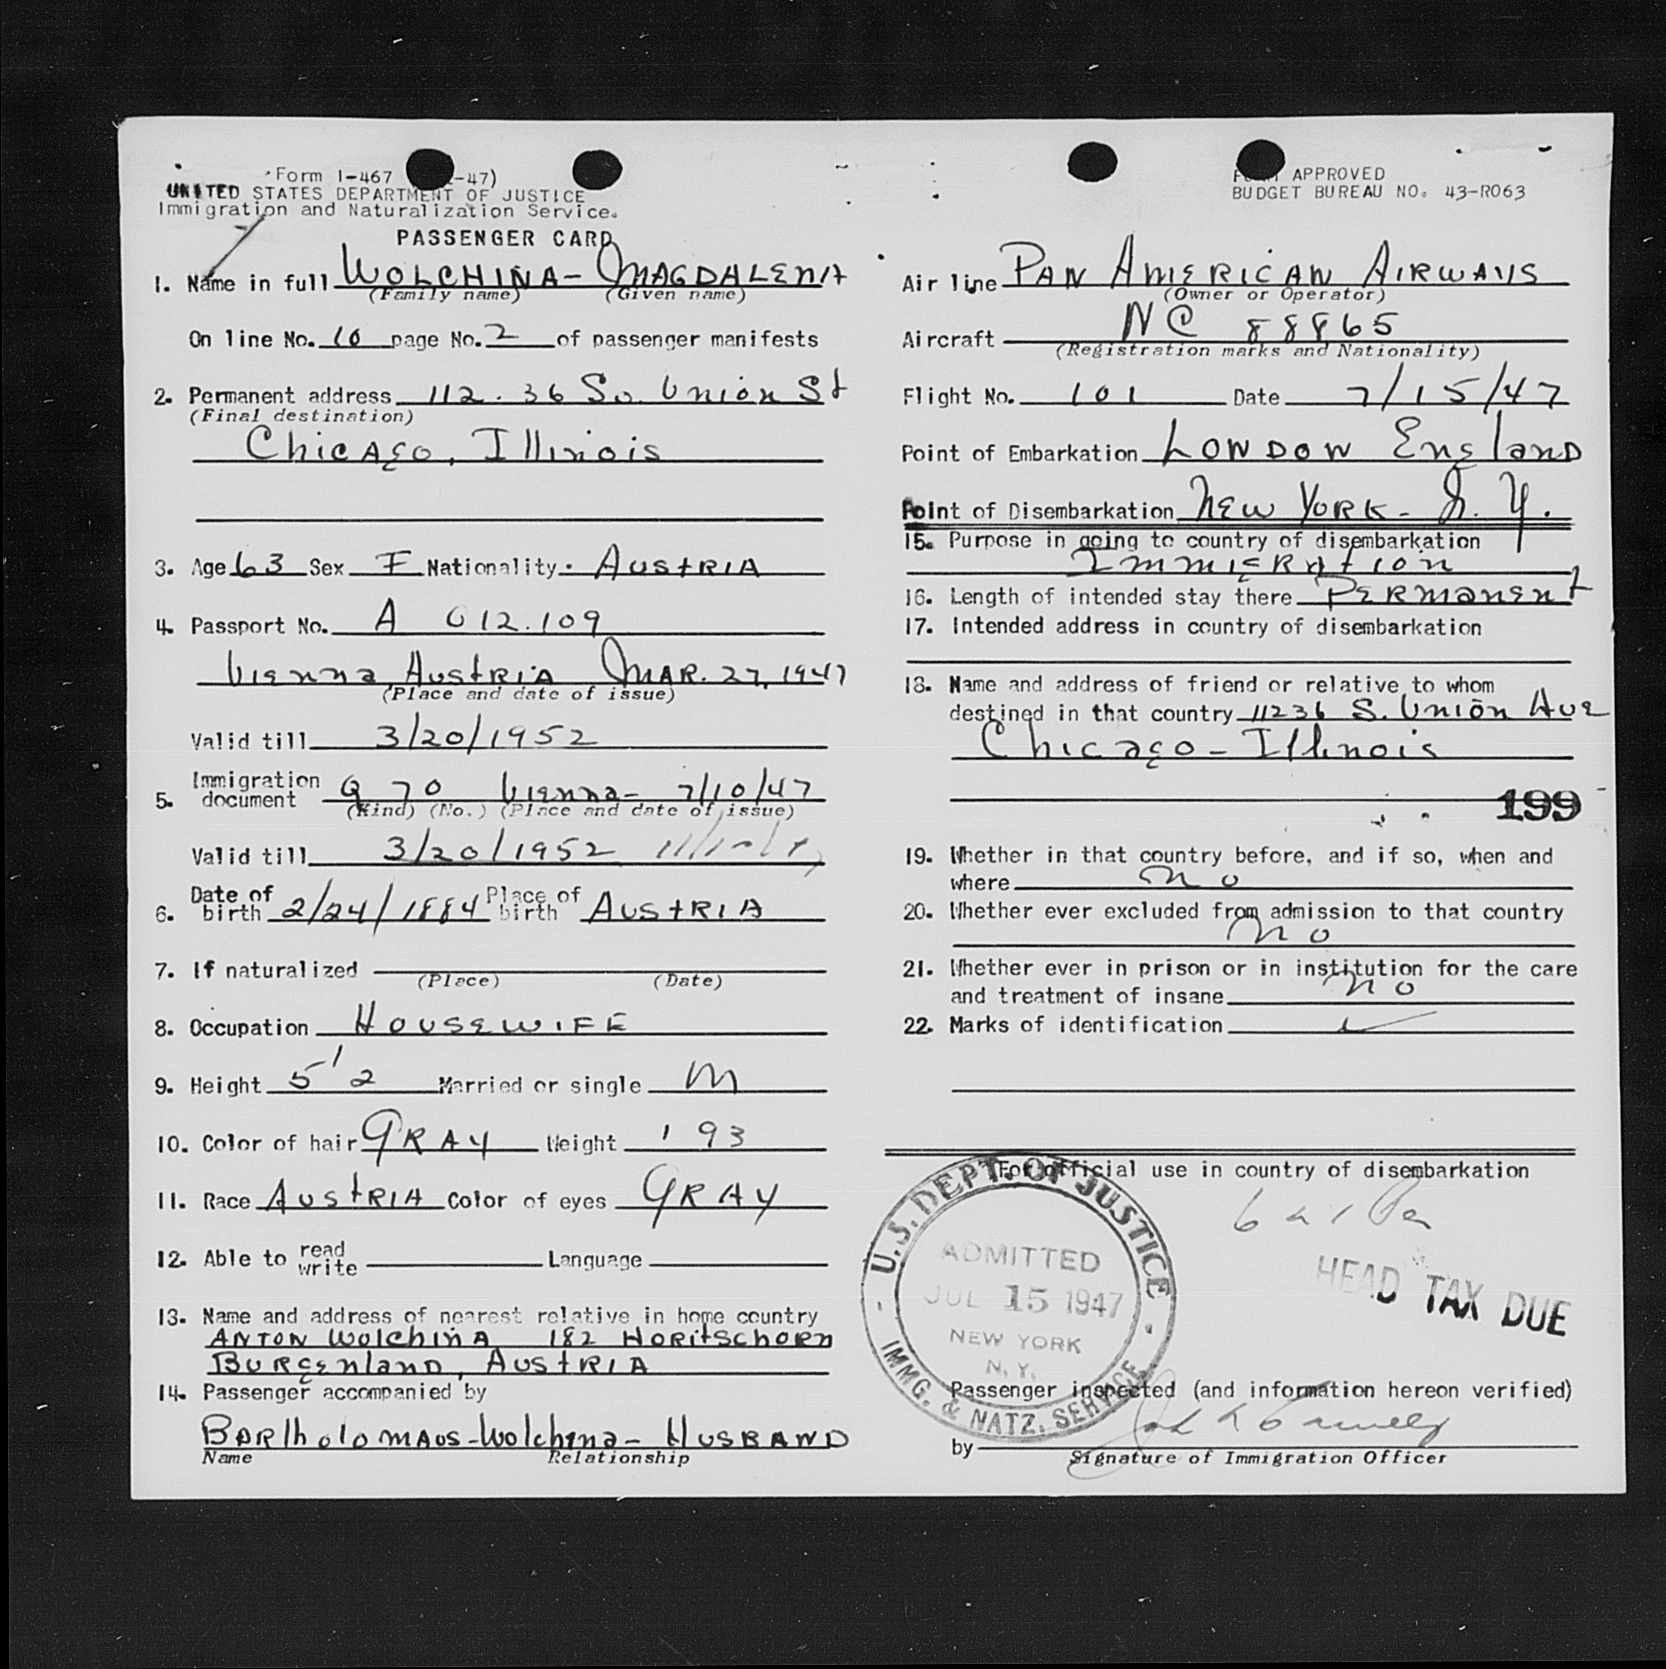 Form I-467 -47)
UNITED STATES DEPARTMENT OF JUSTICE
Immigration and Naturalization Service.
PASSENGER CARD
1. Name in full WOLCHINA - MAGDALENA
(Family name) (Given name)
On line No. 10 page No. 2 of passenger manifests
2. Permanent address 112.36 So. Union St
(Final destination)
Chicago, Illinois
3. Age 63 Sex F Nationality. AUSTRIA
4. Passport No. A 012.109
Vienna, Austria MAR. 27, 1947
(Place and date of issue)
Valid till 3/20/1952
5. Immigration document Q 70 Vienna - 7/10/47
(Kind) (No.) (Place and date of issue)
Valid till 3/20/1952
6. Date of birth 2/24/1884 Place of birth AUSTRIA
7. If naturalized
(Place) (Date)
8. Occupation HOUSEWIFE
9. Height 5'2 Married or single M
10. Color of hair GRAY Weight 193
11. Race AUSTRIA Color of eyes GRAY
12. Able to read write Language
13. Name and address of nearest relative in home country
ANTON WOLCHINA 182 HORITSCHORN
BURGENLAND, AUSTRIA
14. Passenger accompanied by
BARTHOLOMAUS - Wolchina - HUSBAND
Name Relationship
FORM APPROVED
BUDGET BUREAU NO. 43-R063
Air line PAN AMERICAN AIRWAYS
(Owner or Operator)
Aircraft NC 88865
(Registration marks and Nationality)
Flight No. 101 Date 7/15/47
Point of Embarkation LONDON England
Point of Disembarkation NEW YORK - N.Y.
15. Purpose in going to country of disembarkation
IMMIGRATION
16. Length of intended stay there PERMANENT
17. Intended address in country of disembarkation
18. Name and address of friend or relative to whom
destined in that country 11236 S. Union Ave
Chicago - Illinois
199
19. Whether in that country before, and if so, when and
where no
20. Whether ever excluded from admission to that country
no
21. Whether ever in prison or in institution for the care
and treatment of insane no
22. Marks of identification
For official use in country of disembarkation
U.S. DEPT. OF JUSTICE
ADMITTED
JUL 15 1947
NEW YORK
N.Y.
IMMG. & NATZ. SERVICE
HEAD TAX DUE
Passenger inspected (and information hereon verified)
by
Signature of Immigration Officer